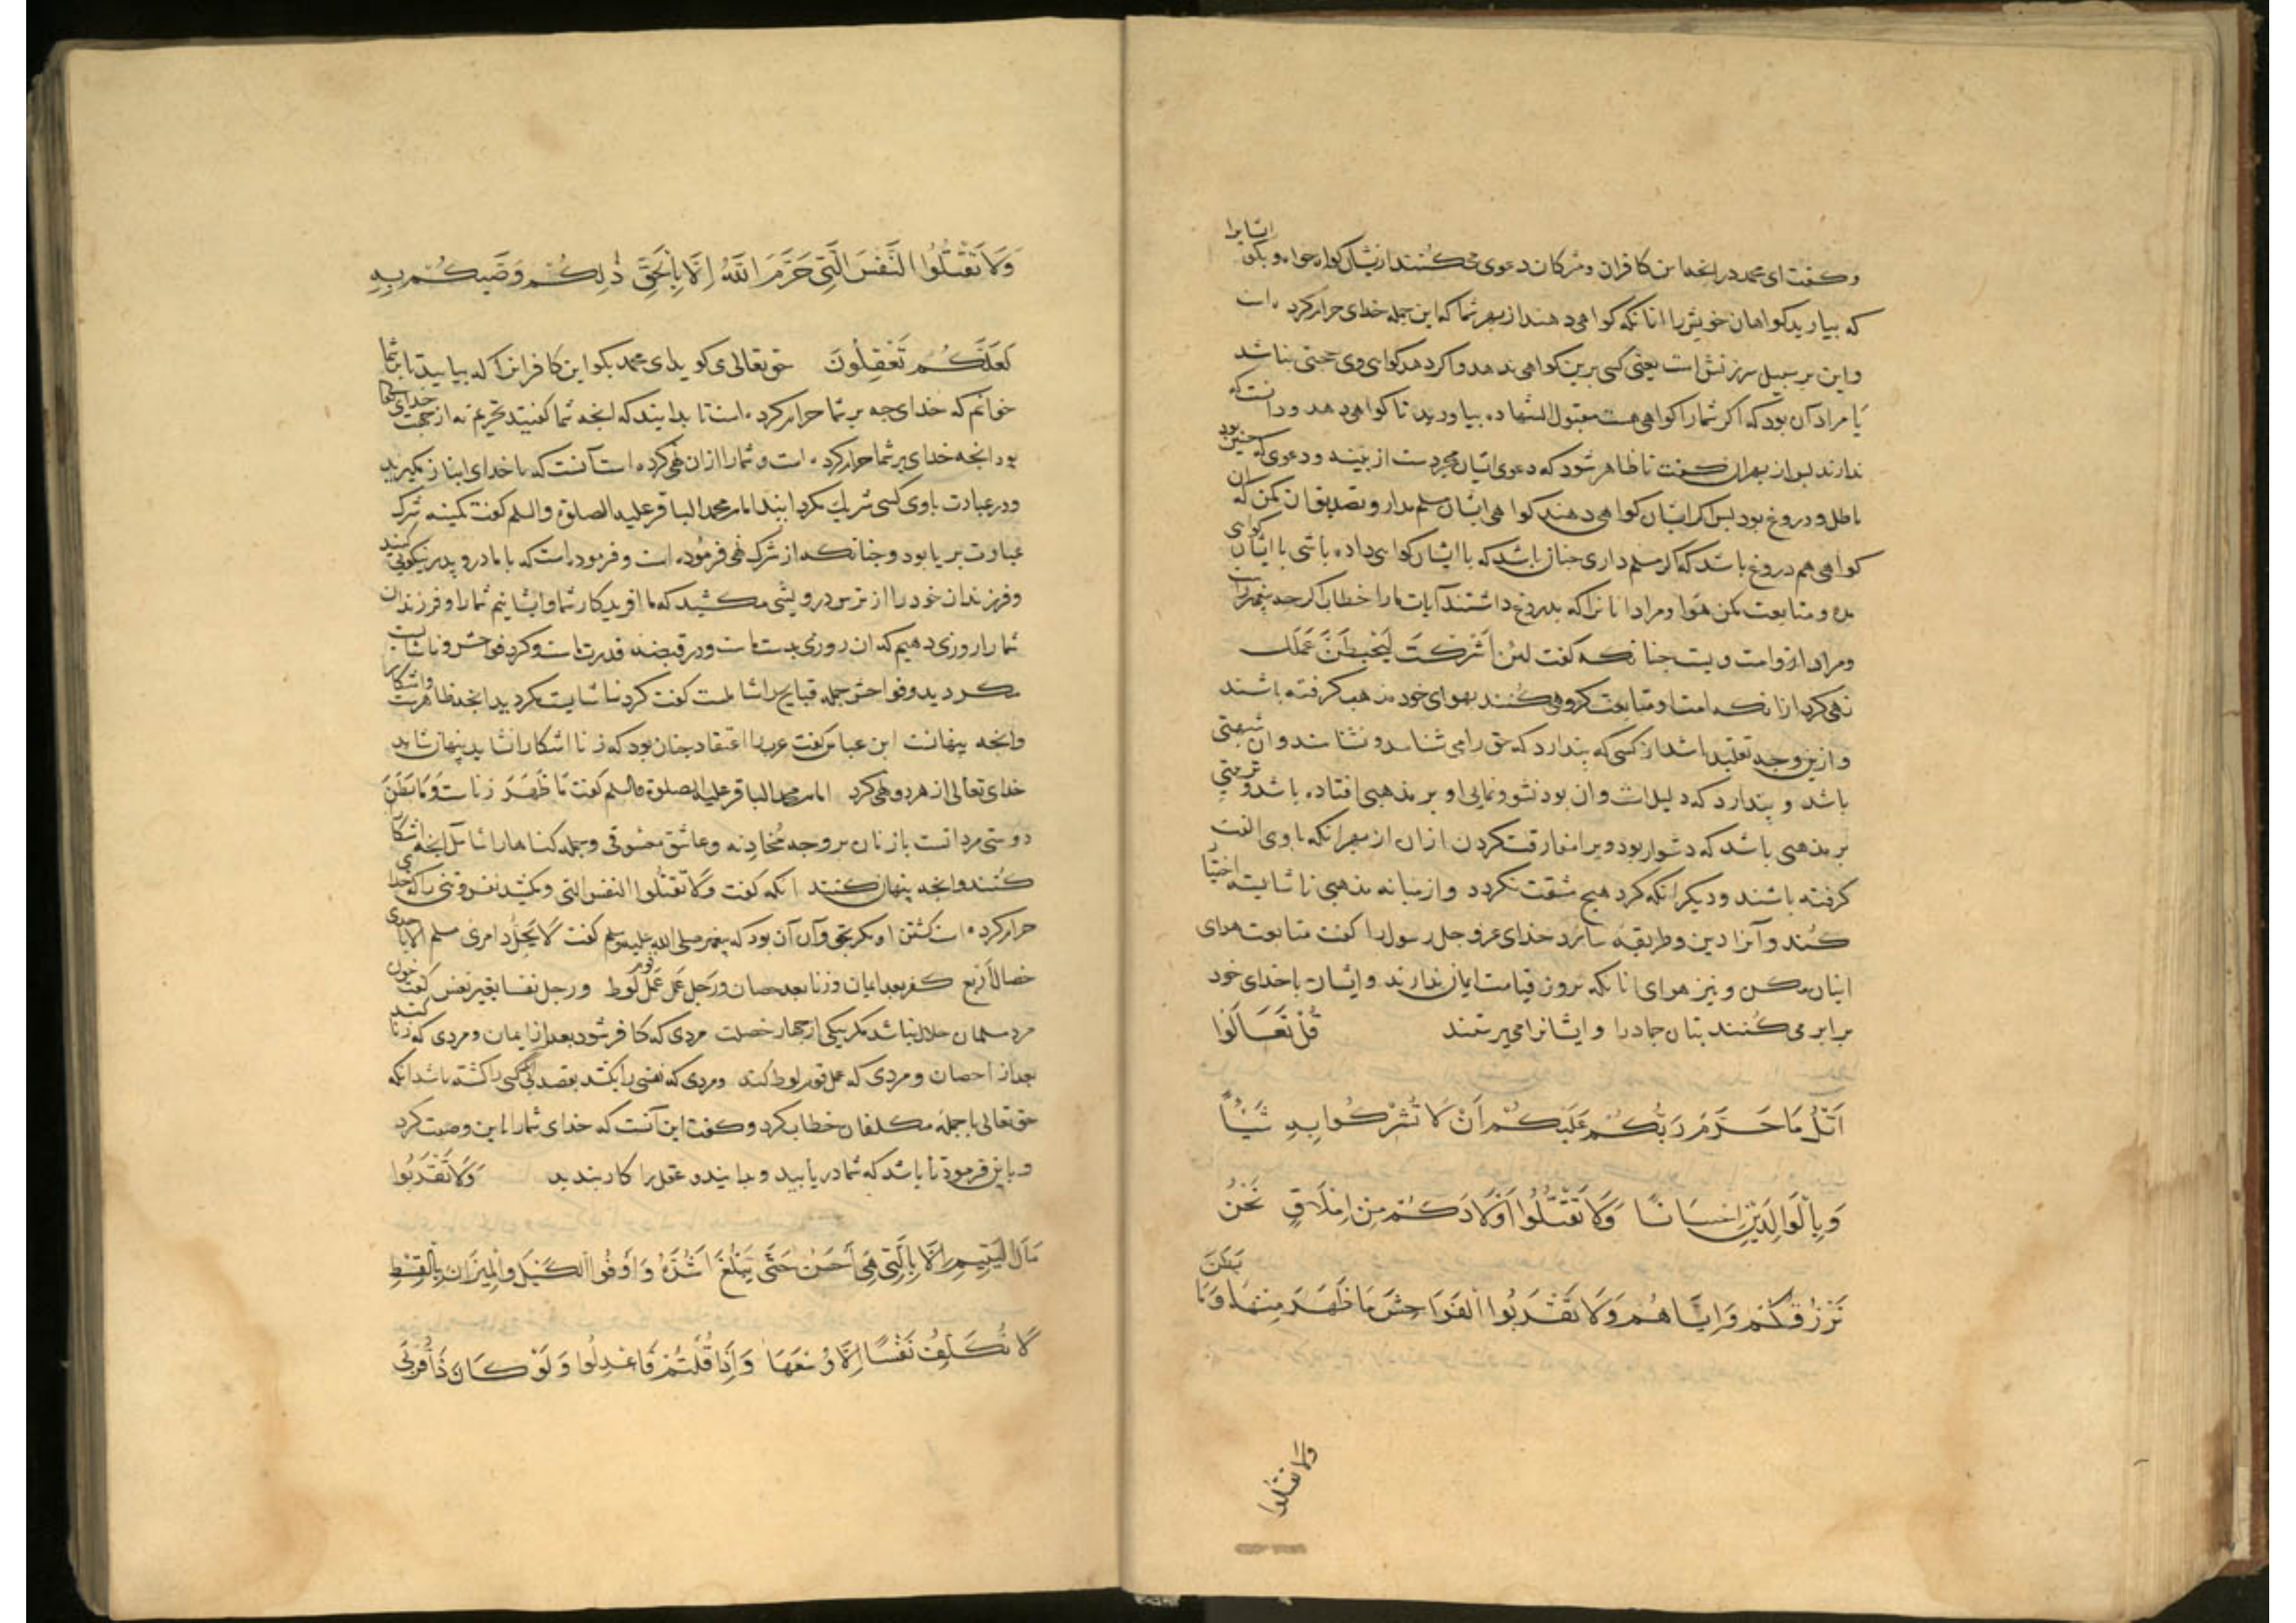 وكفت ای محمد در انچه این کافران ومشرکان دعوی می کنند ازیشان کواه خواه وبکو ایشانرا
که بیارید کواهان خویش را انانکه کواهی دهند از بهر شما که این جمله خدای حرام کرده است
واین بر سبیل سرزنش است یعنی کسی برین کواهی ندهد واکر دهد کواهی وی حجتی نباشد
یا مراد آن بود که اکر شما را کواهی هست مقبول الشهاده بیاورید تا کواهی دهد ودانست که
ندارند پس از بهر ان کفت تا ظاهر شود که دعوی ایشان مجردست از بینه ودعوی که چنین بود
باطل ودروغ بود پس اکر ایشان کواهی دهند کواهی ایشان مسلم مدار وتصدیق ان مکن که ان
کواهی هم دروغ باشد که اکر مسلم داری چنان باشد که با ایشان کواهی داده باشی با ایشان کواهی
مده ومتابعت مکن هوا ومراد انانرا که بدروغ داشتند آیات ما را خطاب اکرچه پیغمبر راست
ومراد ازو امت ویست چنانکه کفت لئن اَشركتَ لَيَحبطنَّ عَمَلك
نهی کرد ازانکه امت او متابعت کروهی کنند بهوای خود مذهب کرفته باشند
وازین وجه تقلید باشد از کسی که پندارد که حق را می شناسد ونشناسد وان شبهتی
باشد وپندارد که دلیلست وان بود نشو ونمایی او بر مذهبی افتاده باشد وتربیتی
بر مذهبی باشد که دشوار بود ویرا مفارقت کردن ازان از بهر انکه با وی الفت
کرفته باشند ودیکر انکه کرد هیچ مشقت نکردد واز میانه مذهبی ناشایسته اختیا
کند وآنرا دین وطریقه سازد خدای عز وجل رسول را کفت متابعت هوای
اینان مکن ونیز هوای انانکه بروز قیامت ایمان ندارند وایشان با خدای خود
برابر می کنند بتان جماد را وایشانرا می پرستند قُلْ تَعَالَوْا
اَتْلُ مَا حَرَّمَ رَبُّكُمْ عَلَيْكُمْ اَنْ لَا تُشْرِكُوا بِهِ شَيْئًا
وَبِالْوَالِدَيْنِ اِحْسَانًا وَلَا تَقْتُلُوا اَوْلَادَكُمْ مِنْ اِمْلَاقٍ نَحْنُ
نَرْزُقُكُمْ وَاِيَّاهُمْ وَلَا تَقْرَبُوا الْفَوَاحِشَ مَا ظَهَرَ مِنْهَا وَمَا بَطَنَ
ولا تقتلوا
وَلَا تَقْتُلُوا النَّفْسَ الَّتِي حَرَّمَ اللّٰهُ اِلَّا بِالْحَقِّ ذٰلِكُمْ وَصّٰيكُمْ بِهِ
لَعَلَّكُمْ تَعْقِلُونَ حق تعالی می کوید ای محمد بکو این کافرانرا که بیایید تا بر شما
خوانم که خدای چه بر شما حرام کرده است تا بدانید که انچه شما کفتید تحریم نه از جهت خدای شما
بود انچه خدای بر شما حرام کرده است وشما را ازان نهی کرده است آنست که با خدای انباز نکیرید
ودر عبادت با وی کسی شریك نکردانید امام محمد الباقر علیه الصلوة والسلم کفت کمینه شرك
عبادت بریا بود وچنانکه از شرك نهی فرموده است وفرموده است که با مادر وپدر نیکویی کنید
وفرزندان خود را از ترس درویشی مکشید که ما افریدکار شما وایشانیم شما را وفرزندان
شما را روزی دهیم که ان روزی بدست ماست ودر قبضه قدرت ماست وکرد فواحش وناشایست
مکردید وفواحش جمله قبایح را شاملست کفت کرد ناشایست مکردید انچه ظاهرست واشکار
وانچه پنهانست ابن عباس کفت عرب را اعتقاد چنان بود که زنا اشکارا نشاید پنهان شاید
خدای تعالی از هر دو نهی کرد امام محمد الباقر علیه الصلوة والسلم کفت مَا ظَهَرَ زناست وَمَا بَطَنَ
دوستی مردانست با زنان بر وجه مُخادنه وعاشق معشوقی وجمله کناهان را شامل انچه اشکا
کنند وانچه پنهان کنند انکه کفت وَلا تقتلوا النفس التی ومکشید نفس وتنی را که خدای
حرام کرده است کشتن او مکر بحق وآن آن بود که پیغمبر صلی الله علیه وسلم کفت لا یَحِلُّ دم امری مسلم الا باحدی
خصال اَربع کفر بعد ایمان وزنا بعد احصان ورجل عَمل عَمل قوم لُوط ورجل قتل نفسا بغیر نفس کفت خون
مرد مسلمان حلال نباشد مکر بیکی از چهار خصلت مردی که کافر شود بعد از ایمان ومردی که زنا کند
بعد از احصان ومردی که عمل قوم لوط کند ومردی که نفسی را بکشد بقصد بی انکه کسی را کشته باشد انکه
حق تعالی با جمله مکلفان خطاب کرد وکفت این آنست که خدای شما را باین وصیت کرد
وباین فرمود تا باشد که شما دریابید وبدانید وعقل را کار بندید وَلَا تَقْرَبُوا
مَالَ الْيَتِيمِ اِلَّا بِالَّتِي هِيَ اَحْسَنُ حَتَّى يَبْلُغَ اَشُدَّهُ وَاَوْفُوا الْكَيْلَ وَالْمِيزَانَ بِالْقِسْطِ
لَا نُكَلِّفُ نَفْسًا اِلَّا وُسْعَهَا وَاِذَا قُلْتُمْ فَاعْدِلُوا وَلَوْ كَانَ ذَا قُرْبَى